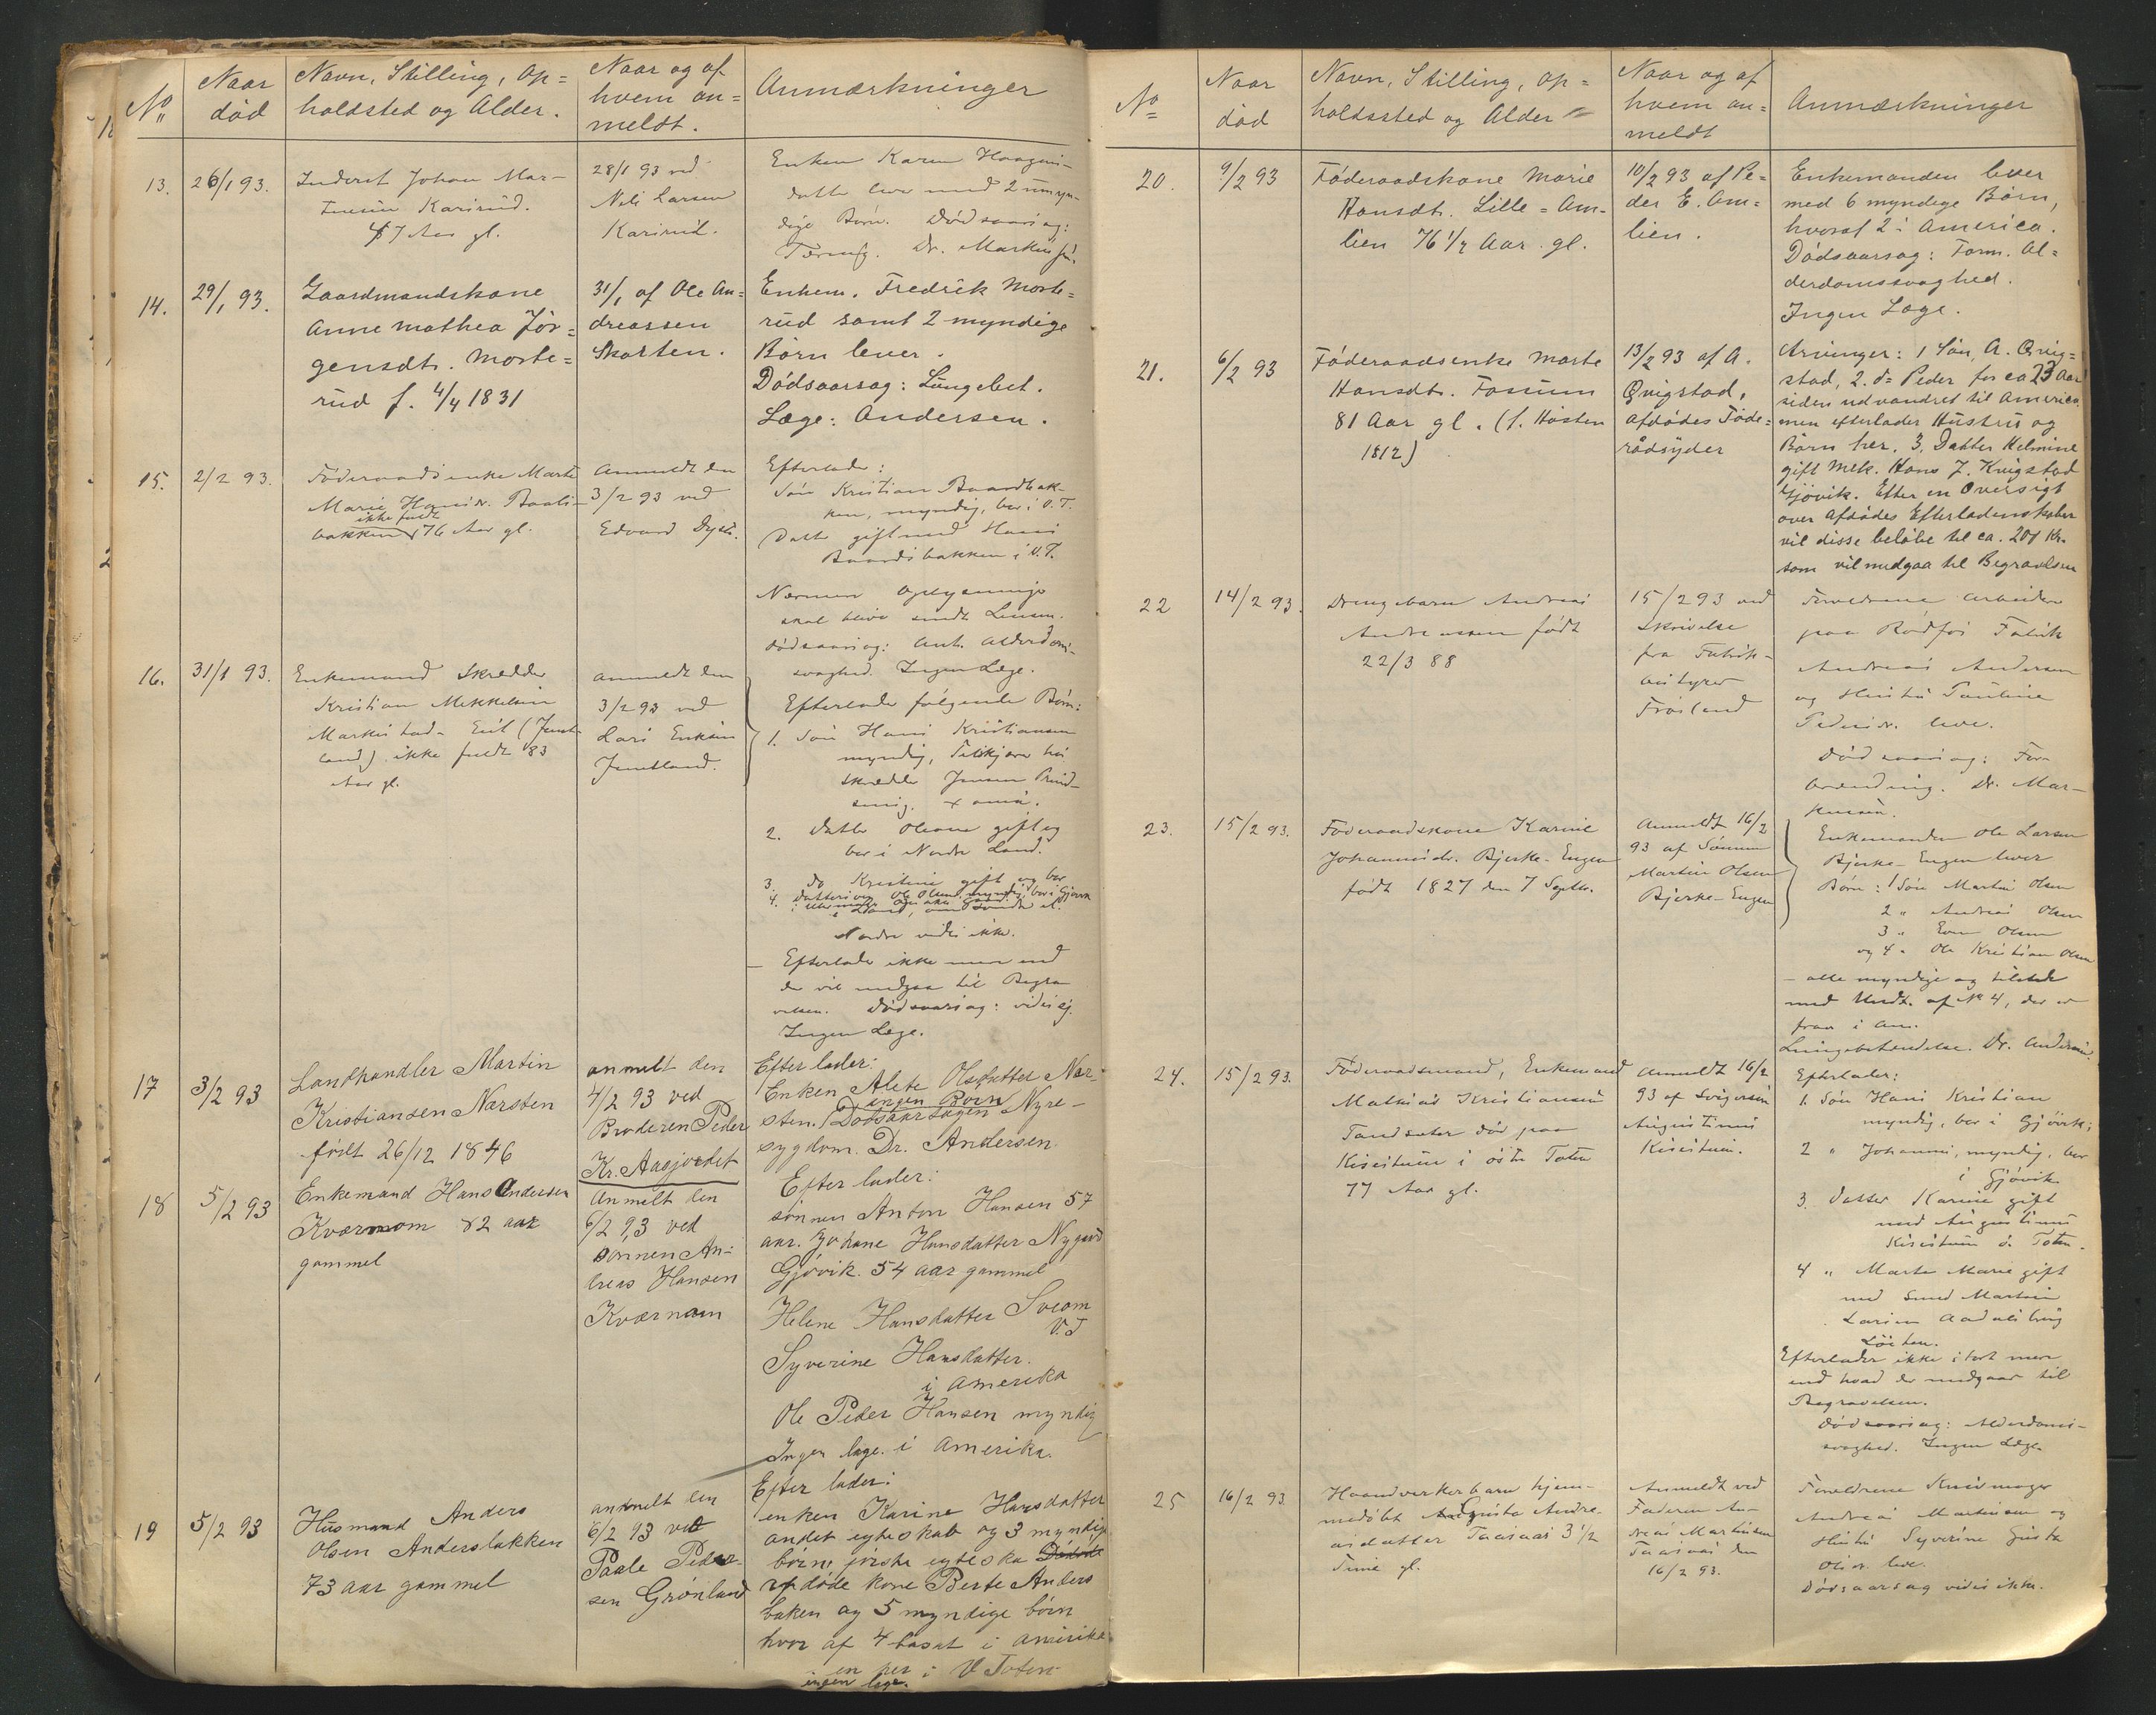 No
Naar
død
Navn, Stilling, Op=
holdsted og Alder.
Naar og af
hvem an=
meldt.
Anmærkninger
13.
26/1 93.
Inderst Johan Mar-
Karisrud.
47 Aar gl.
28/1 93 ved
Nils Larsen
Karisrud.
Enken Karen Haagens-
datter lever med 2 umyn-
dige Børn. Dødsaarsag:
Tæring. Dr.
14.
29/1 93.
Gaardmandskone
Anne Mathea Jør=
gensdt. Morte=
rud f. 4/4 1831
31/1 af Ole An=
dreassen
Skarten.
Enkem. Fredrik Morte=
rud samt 2 myndige
Børn lever.
Dødsaarsag: Lungebet.
Læge: Andersen.
15.
2/2 93.
Føderaadsenke Marte
Marie Hansdr. Baads-
ikke fuldt
bakken 76 Aar gl.
Anmeldt den
3/2 93 ved
Edvard Dyste.
Efterlader:
Søn Kristian Baardsbak-
ken, myndig, bor i V. T.
Datter gift med Hans
Baardsbakken i V. T.
Nærmere Oplysninger
skal blive sendt Lensm.
Dødsaarsag: Ant. Alderdoms-
svaghed. Ingen Læge.
16.
31/1 93.
Enkemand Skrædder
Kristian Mikkelsen
Markestad- Eiet (Jemt-
land) ikke fuldt 83
Aar gl.
Anmeldt den
3/2 93 ved
Lars Eriksen
Jemtland.
Efterlader følgende Børn:
1. Søn Hans Kristiansen
myndig, Tilskjærer hos
Skrædder Jensen
2. Datter Oleane gift og
bor i Nordre Land.
3. do Kristine gift og bor
4. Dattersøn Ole Olsen, myndig, bor i Gjøvik
Nordre vides ikke.
— Efterlader ikke mere end
der vil medgaa til Begra-
velsen. Dødsaarsag: vides ej.
Ingen Læge.
17
3/2 93
Landhandler Martin
Kristiansen Nærsten
født 26/12 1846
anmelt den
4/2 93 ved
Broderen Peder
Kr. Aasjordet
Efterlader:
Enken Alete Olsdatter Nær-
ingen Børn
sten. Dødsaarsagen Nyre-
sygdom. Dr. Andersen
18
5/2 93
Enkemand Hans Andersen
Kværnom 82 aar
gammel
Anmelt den
6/2 93 ved
sønnen An-
dreas Hansen
Kværnom
Efterlader:
sønnen Anton Hansen 57
aar. Johane Hansdatter Nygaard
Gjøvik. 54 aar gammel
Helene Hansdatter Sveom
V. T
Syverine Hansdatter.
i Amerika
Ole Peder Hansen myndig
Ingen læge. i Amerika.
19
5/2 93
Husmand Anders
Olsen Andersbakken
73 aar gammel
anmelt den
6/2 93 ved
Paale Peder-
sen Grønland
Efterlader:
enken Karine Hansdatter
andet egteskab og 3 myndige
børn, første egteska
afdøde kone Berte Anders
baken og 5 myndige børn
hvor af 4 bosat i Amerika
en her i V Toten
ingen læge.
No
Naar
død
Navn, Stilling, Op=
holdssted og Alder
Naar og af
hvem an=
meldt
Anmærkninger
20.
9/2 93
Føderaadskone Marie
Hansdt. Lille=Am-
lien 76 1/2 Aar gl.
10/2 93 af Pe=
der E. Am=
lien.
Enkemanden lever
med 6 myndige Børn,
hvoraf 2 i America.
Dødsaarsag: Form. Al=
derdomssvaghed.
Ingen Læge.
21.
6/2 93
Føderaadsenke Marte
Hansdt. Fossum
81 Aar gl. (f. Høsten
1812)
13/2 93 af A.
Qvigstad,
afdødes Føde=
rådsyder
Arvinger: 1 Søn, A. Qvig=
stad, 2. do Peder for ca 23 Aar
siden udvandret til America
men efterlader Hustru og
Børn her, 3, Datter Helmine
gift Mek. Hans J. Kvigstad
Gjøvik. Efter en Oversigt
over Afdødes Efterladenskaber
vil disse beløbe til ca. 201 Kr.
som vil medgaa til Begravelsen
22
14/2 93.
Drengebarn Andreas
Andreassen født
22/3 88
15/2 93 ved
Skrivelse
fra Fabrik-
bestyrer
Frøisland
Forældrene Arbeider
paa Rødfos Fabrik
Andreas Andersen
og Hustru Pauline
Pedersdr. lever.
Dødsaarsag: For-
brænding. Dr. Mar-
23.
15/2 93.
Føderaadskone Karine
Johannesdr. Bjerke-Engen
født 1827 den 7 Septbr.
Anmeldt 16/2
93 af Sønnen
Martin Olsen
Bjerke-Engen
Enkemanden Ole Larsen
Bjerke-Engen lever
Børn: 1 Søn Martin Olsen
2 " Andreas Olsen
3 " Even Olsen
og 4 " Ole Kristian Olsen
- alle myndige og tilstede
med Undt. af No 4, der er
frav. i Am.
Lungebetændelse. Dr. Andersen.
24.
15/2 93.
Føderaadsmand, Enkemand
Mathias Kristiansen
Tandsæter død paa
Kisestuen i Østre Toten
77 Aar gl.
Anmeldt 16/2
93 af Svigersøn
Augustinus
Kisestuen.
Efterlader:
1. Søn Hans Kristian
myndig, bor i Gjøvik;
2 " Johannes, myndig, bor
i Gjøvik
3. Datter Karine gift
med Augustinus
Kisestuen Ø. Toten.
4 " Marte Marie gift
med Smed Martin
Larsen Aadalsbrug
Løiten.
Efterlader ikke stort mere
end hvad der medgaar til
Begravelsen.
Dødsaarsag: Alderdoms-
svaghed. Ingen Læge.
25
16/2 93
Haandverkerbarn hjem-
medøbt Augusta Andre-
asdatter Taasaas 3 1/2
Time gl.
Anmeldt ved
Faderen An-
dreas Martinsen
Taasaas den
16/2 93.
Forældrene Knivmager
Andreas Martinsen og
Hustru Syverine Gusta
Olsdr. lever.
Dødsaarsag vides ikke.